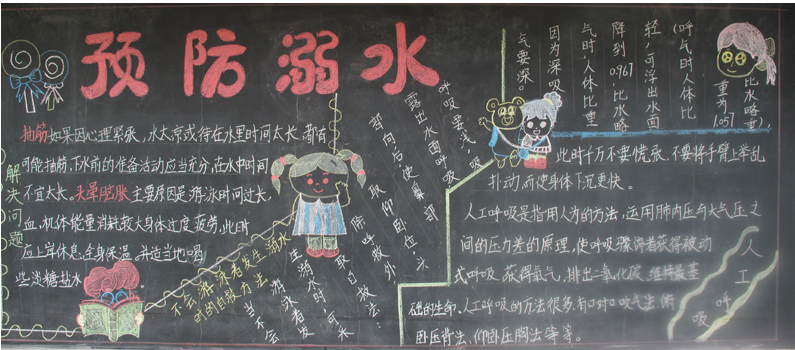 预防溺水
解决问题
抽筋如果因心理紧张,水太凉或待在水里时间太长,都有
可能抽筋.下水前的准备活动应当充分,在水中时间
不宜太长。头晕脑胀主要原因是游泳时间过长,
血,机体能量消耗较大身体过度疲劳,此时
应上岸休息,全身保温。并适当地喝
些淡糖盐水
不会游泳者发生溺水
时的自救方法
当不会
游泳者发
生溺水时,可采
取自救法:
除呼救外,
取仰卧位,头
部向后使鼻部
露出水面呼吸
呼吸要浅,吸
气要深。
因为深吸
气时,人体比重
降到0.967,比水略
轻,可浮出水面
(呼气时人体比
重为1.057
比水略重)
此时千万不要慌张,不要将手臂上举乱
扑动,而使身体下沉更快。
人工呼吸
人工呼吸是指用人为的方法,运用肺内压与大气压之
间的压力差的原理,使呼吸骤停者获得被动
式呼吸,获得氧气,排出二氧化碳,维持最基
础的生命。人工呼吸的方法很多,有口对口吹气法,俯
卧压背法,仰卧压胸法等等。